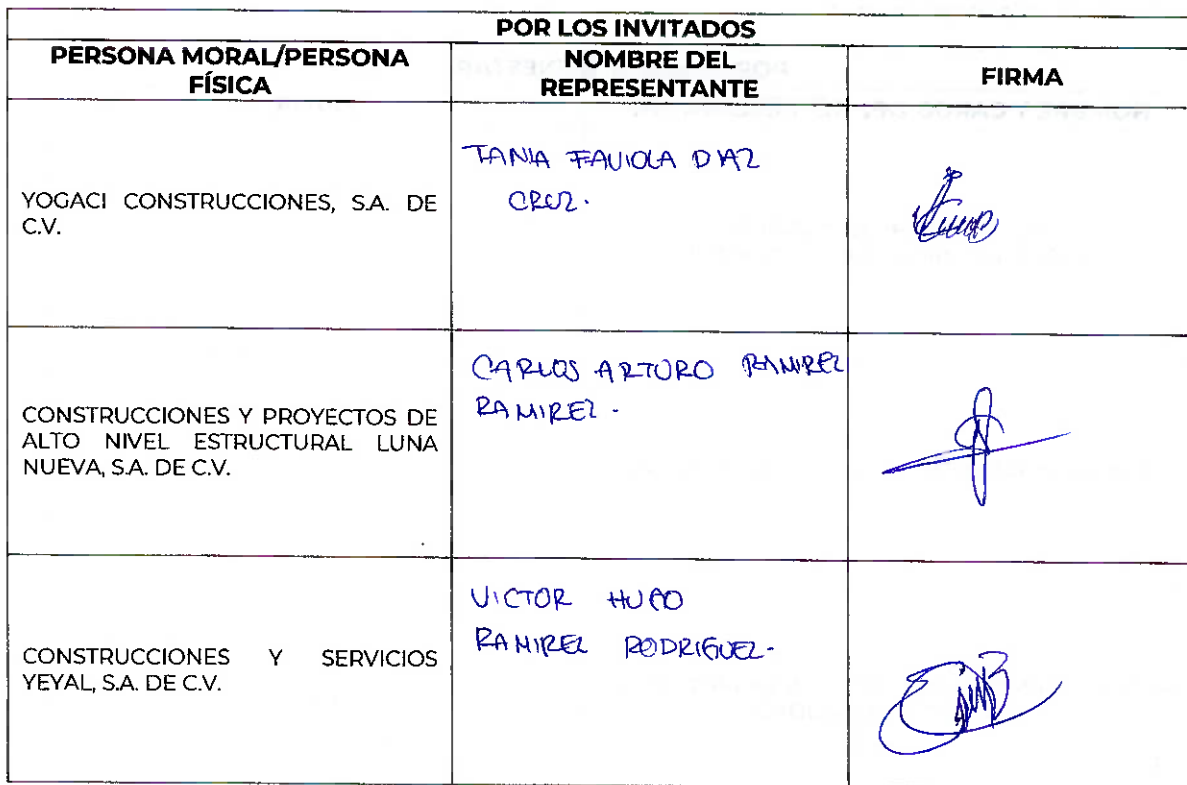 POR LOS INVITADOS
PERSONA MORAL/PERSONA FÍSICA
NOMBRE DEL REPRESENTANTE
FIRMA
YOGACI CONSTRUCCIONES, S.A. DE
C.V.
TANIA FAVIOLA DIAZ
CRUZ.
CONSTRUCCIONES Y PROYECTOS DE
ALTO NIVEL ESTRUCTURAL LUNA
NUEVA, S.A. DE C.V.
CARLOS ARTURO RAMIREZ
RAMIREZ.
CONSTRUCCIONES Y SERVICIOS
YEYAL, S.A. DE C.V.
VICTOR HUGO
RAMIREZ RODRIGUEZ.